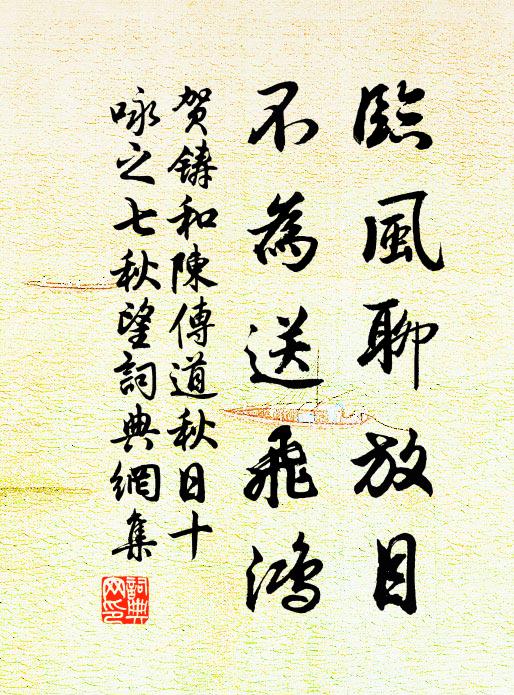 臨風聊放目
不為送飛鴻
賀鑄和陳傳道秋日十
咏之七秋望詞典網集
詞典網印